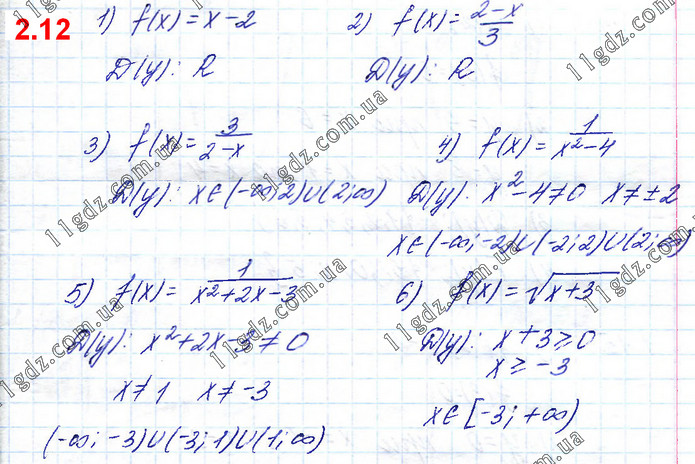 2.12
1) f(x) = x - 2
D(y): R
2) f(x) = (2-x)/3
D(y): R
3) f(x) = 3/(2-x)
D(y): x∈(-∞;2)∪(2;∞)
4) f(x) = 1/(x²-4)
D(y): x²-4≠0 x≠±2
x∈(-∞;-2)∪(-2;2)∪(2;∞)
5) f(x) = 1/(x²+2x-3)
D(y): x²+2x-3≠0
x≠1 x≠-3
(-∞;-3)∪(-3;1)∪(1;∞)
6) f(x) = √(x+3)
D(y): x+3≥0
x≥-3
x∈[-3;+∞)
11gdz.com.ua
11gdz.com.ua
11gdz.com.ua
11gdz.com.ua
11gdz.com.ua
11gdz.com.ua